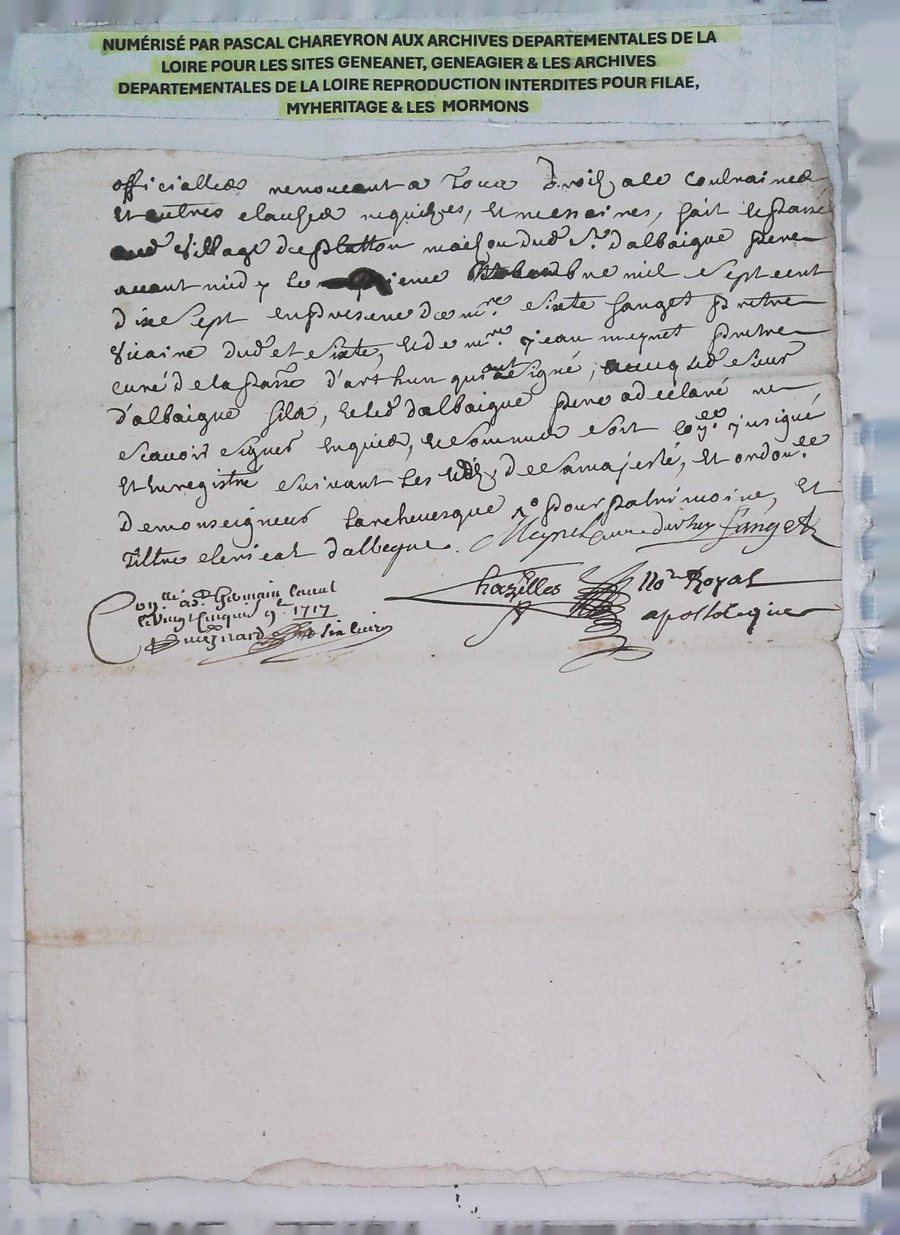 NUMÉRISÉ PAR PASCAL CHAREYRON AUX ARCHIVES DEPARTEMENTALES DE LA
LOIRE POUR LES SITES GENEANET, GENEAGIER & LES ARCHIVES
DEPARTEMENTALES DE LA LOIRE REPRODUCTION INTERDITES POUR FILAE,
MYHERITAGE & LES MORMONS
officialles renonceant a tous droits a ce contraires
Et autres clauses requises, Et nessaires, fait et passé
aud village de platton maison dud Sr. d'albaigue pere
avant midy le
dix sept en presence de mre sixte fanget prettre
Vicaire dud st sixte, et de mre jean meynet prettre
curé de la parsse d'arthun qui ont signé, avecq led sieur
d'albaigue fils, et led d'albaigue pere a declaré ne
scavoir signer enquis, et sommes soit coller insigné
Et Enregistré suivant les Edits de sa majesté, Et ordoces
de monseigneur larchevesque pour patrimoine, Et
tiltre clerical d'albegue. Meynet curé darthun fanget
Chazelles Nore Royal
apostolique
Conllé a St Germain Laval
le vingt cinquie 9r 1717